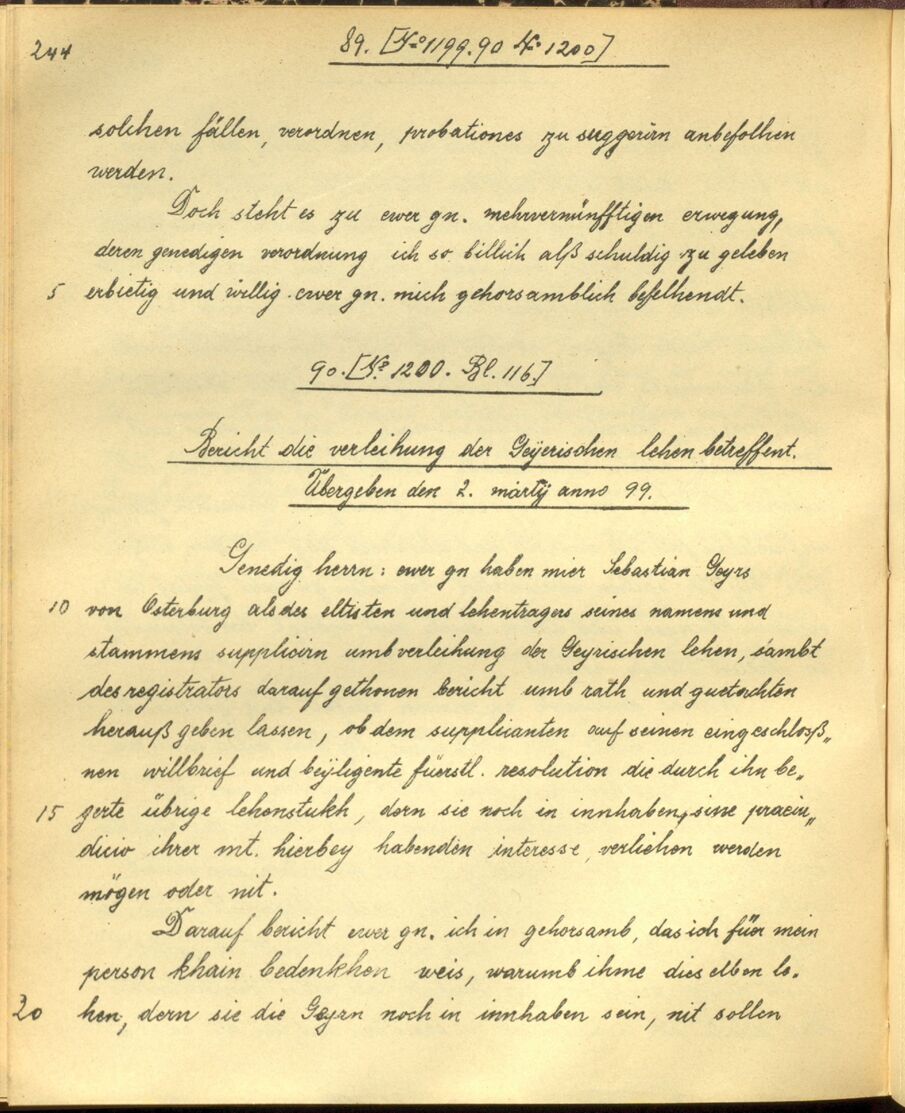 244
89. [No 1199. 90 No 1200]
solchen fällen, verordnen, probationes zu suggerirn anbefolhen
werden.
Doch steht es zu ewer gn. mehrvernünfftigen erwegung,
deren genedigen verordnung ich so billich alß schuldig zu geleben
5 erbietig und willig. ewer gn. mich gehorsamblich befelhendt.
90. [No. 1200. Bl. 116.]
Bericht die verleihung der Geÿerischen lehen betreffent.
Übergeben den 2. martÿ anno 99.
Genedig herrn: ewer gn haben mier Sebastian Geyrs
10 von Osterburg als des eltisten und lehentragers seines namens und
stammens supplicirn umb verleihung der Geyrischen lehen, sambt
des registrators darauf gethonen bericht umb rath und guetachten
herauß geben lassen, ob dem supplicanten auf seinen eingeschloß„
nen willbrief und beÿligente füerstl. resolution die durch ihn be„
15 gerte übrige lehenstukh, dern sie noch in innhaben, sine praeiu„
dicio ihrer mt. hierbey habenden interesse, verliehen werden
mögen oder nit.
Darauf bericht ewer gn. ich in gehorsamb, das ich füer mein
person khain bedenkhen weis, warumb ihme dieselben le„
20 hen, dern sie die Geyrn noch in innhaben sein, nit sollen